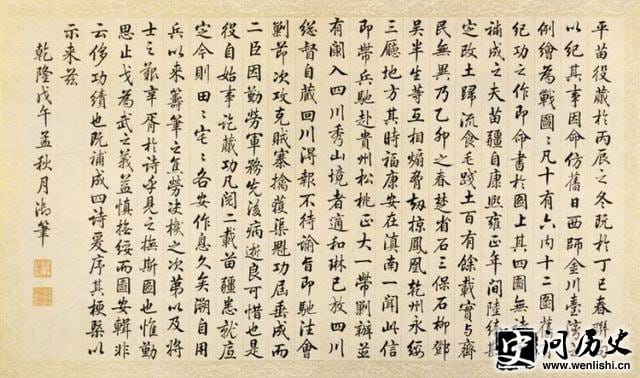 平苗役蕆於丙辰之冬既於丁巳春聯
以紀其事因命仿舊日西師金川臺灣之
例繪為戰圖〻凡十有六內十二圖舊
紀功之作即命書於圖上其四圖無詩
補成之夫苗疆自康熙雍正年間陸續
定改土歸流食毛踐土百有餘載實與齊
民無異乃乙卯之春楚省石三保石柳鄧
吳半生等互相煽脅刼掠鳳凰乾州永綏
三廳地方其時福康安在滇南一聞此信
即帶兵馳赴貴州松桃正大一帶剿辦並
有闌入四川秀山境者適和琳已放四川
總督自藏回川得報不待諭旨即馳往會
剿節次攻克賊寨擒獲渠魁功届垂成而
二臣因勤勞軍務先後病逝良可惜也是
役自始事訖蕆功凡閱二載苗疆悉就底
定今則田〻宅〻各安作息久矣溯自用
兵以來籌筆之焦勞決機之次第以及將
士之艱辛胥於詩乎見之撫斯圖也惟勤
思止戈為武之義益慎撫綏而圖安輯非
云侈功績也既補成四詩爰序其梗槩以
示來茲
乾隆戊午孟秋月御筆
问历史
www.wenlishi.cn